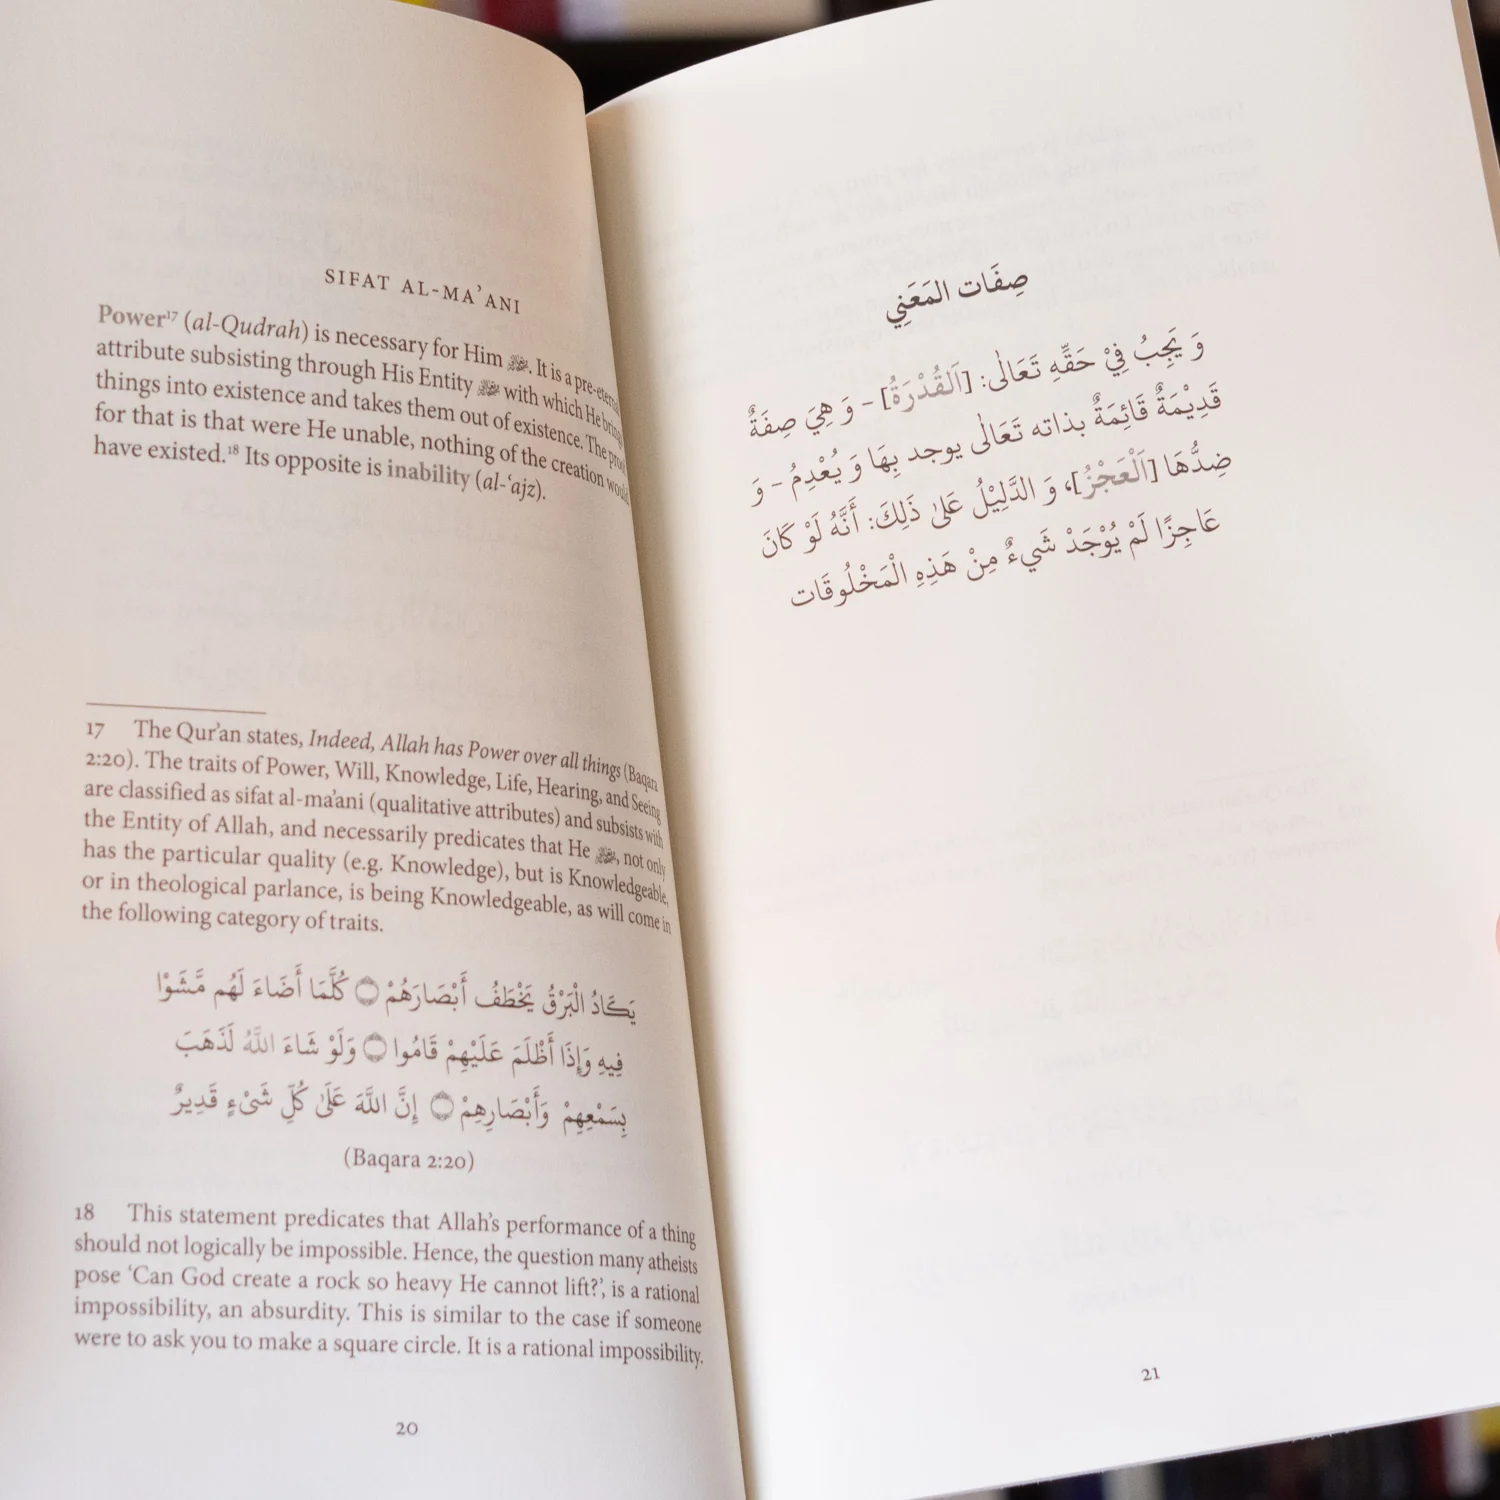 SIFAT AL-MA’ANI
Power¹⁷ (al-Qudrah) is necessary for Him ﷻ. It is a pre-eternal
attribute subsisting through His Entity ﷻ with which He brings
things into existence and takes them out of existence. The proof
for that is that were He unable, nothing of the creation would
have existed.¹⁸ Its opposite is inability (al-‘ajz).
17 The Qur’an states, Indeed, Allah has Power over all things (Baqara
2:20). The traits of Power, Will, Knowledge, Life, Hearing, and Seeing
are classified as sifat al-ma’ani (qualitative attributes) and subsists with
the Entity of Allah, and necessarily predicates that He ﷻ, not only
has the particular quality (e.g. Knowledge), but is Knowledgeable,
or in theological parlance, is being Knowledgeable, as will come in
the following category of traits.
يَكَادُ الْبَرْقُ يَخْطَفُ أَبْصَارَهُمْ ۝ كُلَّمَا أَضَاءَ لَهُم مَّشَوْا
فِيهِ وَإِذَا أَظْلَمَ عَلَيْهِمْ قَامُوا ۝ وَلَوْ شَاءَ اللَّهُ لَذَهَبَ
بِسَمْعِهِمْ وَأَبْصَارِهِمْ ۝ إِنَّ اللَّهَ عَلَىٰ كُلِّ شَىْءٍ قَدِيرٌ
(Baqara 2:20)
18 This statement predicates that Allah’s performance of a thing
should not logically be impossible. Hence, the question many atheists
pose ‘Can God create a rock so heavy He cannot lift?’, is a rational
impossibility, an absurdity. This is similar to the case if someone
were to ask you to make a square circle. It is a rational impossibility.
20
صِفَات المَعَنِي
وَ يَجِبُ فِيْ حَقِّهِ تَعَالٰى: [اَلقُدْرَةُ] – وَ هِيَ صِفَةٌ
قَدِيْمَةٌ قَائِمَةٌ بذاته تَعَالٰى يوجد بِهَا وَ يُعْدِمُ – وَ
ضِدُّهَا [اَلْعَجْزُ]، وَ الدَّلِيْلُ عَلىٰ ذَلِكَ: أَنَّهُ لَوْ كَانَ
عَاجِزًا لَمْ يُوْجَدْ شَيءٌ مِنْ هَذِهِ الْمَخْلُوقَات
21